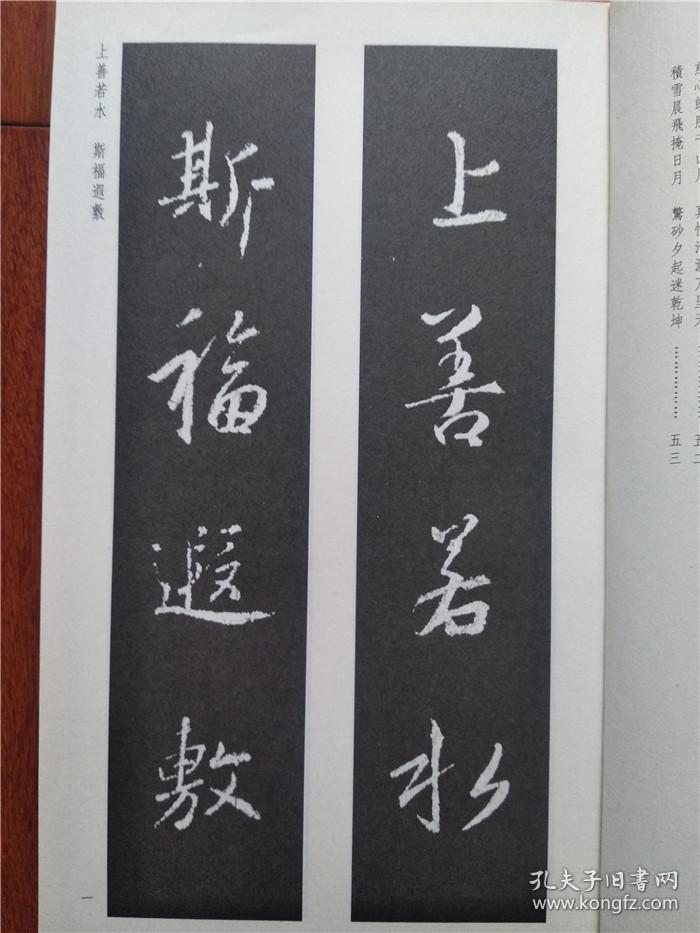 積雪晨飛掩日月　驚砂夕起迷乾坤 ……………… 五三
上善若水
斯福遐敷
上善若水　斯福遐敷
一
孔夫子旧书网
www.kongfz.com